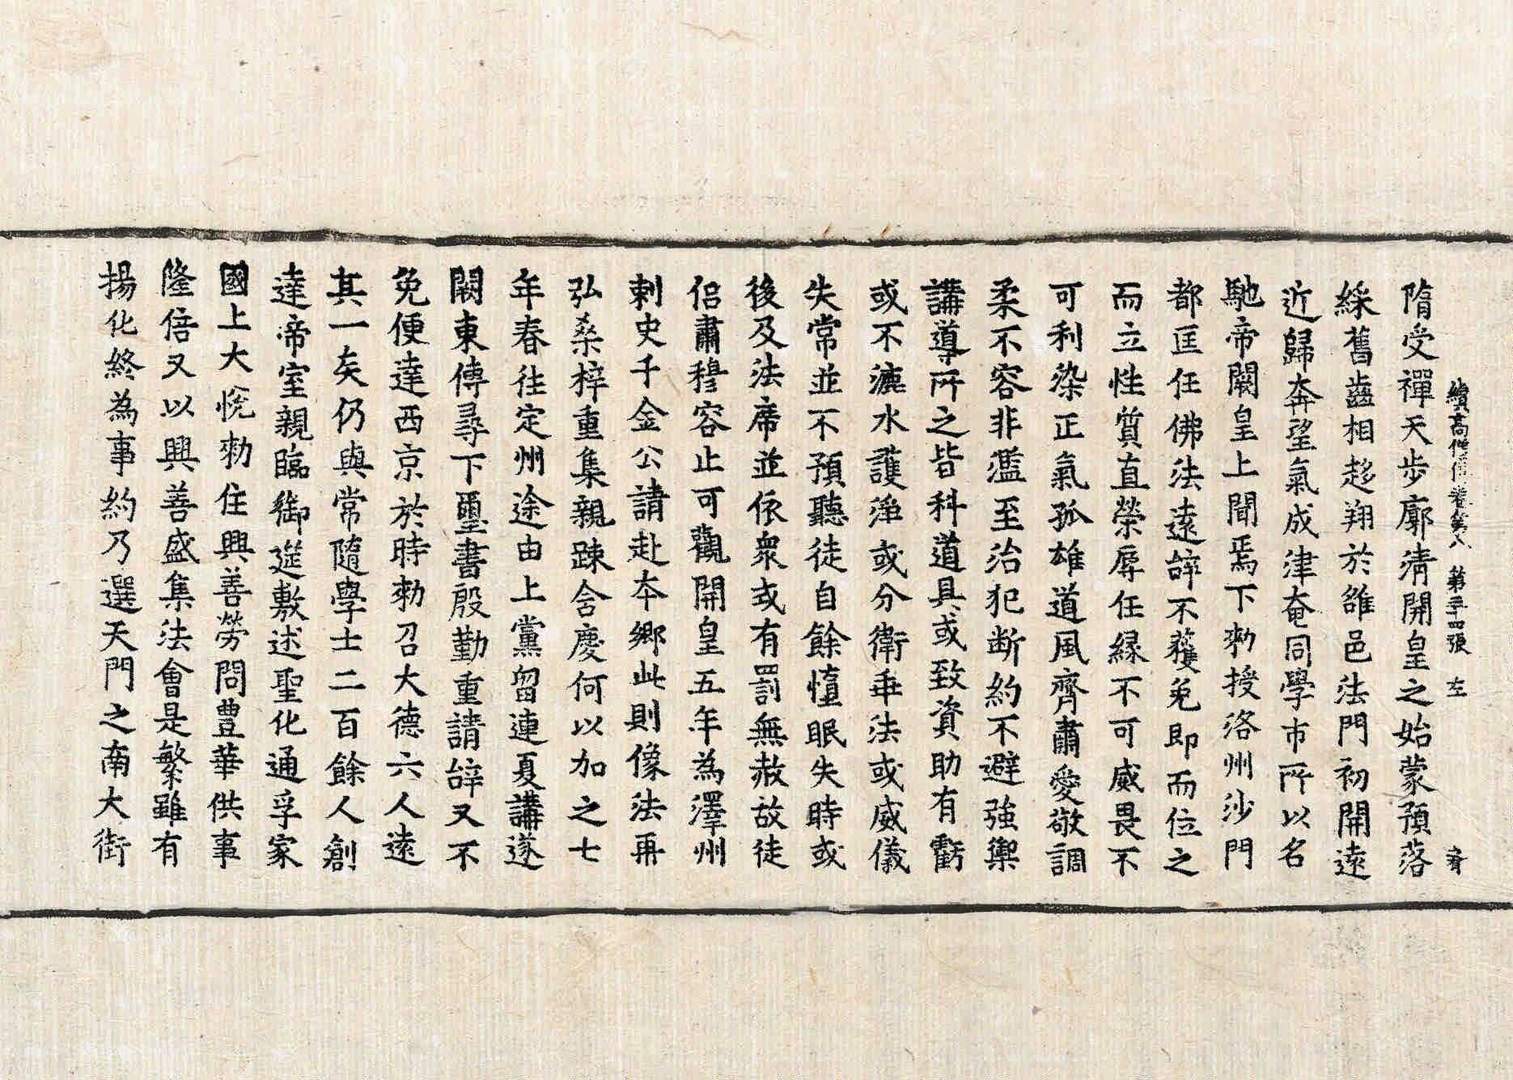 續高僧傳卷第八 第二十四張 左
隋受禪天步廓清開皇之始蒙預落
綵舊齒相趍翔於雒邑法門初開遠
近歸奔望氣成津奄同學市所以名
馳帝闕皇上聞焉下勑授洛州沙門
都匡任佛法遠辝不獲免即而位之
而立性質直榮辱任緣不可威畏不
可利染正氣孤雄道風齊肅愛敬調
柔不容非濫至治犯断約不避強禦
講導所之皆科道具或致資助有虧
或不漉水護淨或分衛乖法或威儀
失常並不預聽徒自餘憜眠失時或
後及法席並依衆或有罰無赦故徒
侶肅穆容止可觀開皇五年為澤州
刺史千金公請赴夲鄉此則像法再
弘桒梓重集親踈含慶何以加之七
年春往定州途由上黨留連夏講遂
闕東傳尋下璽書殷勤重請辝又不
免便達西京於時勑召大德六人遠
其一矣仍與常隨學士二百餘人創
達帝室親臨御筵敷述聖化通孚家
國上大悅勑住興善勞問豊華供事
隆倍又以興善盛集法會是繁雖有
揚化終為事約乃選天門之南大街